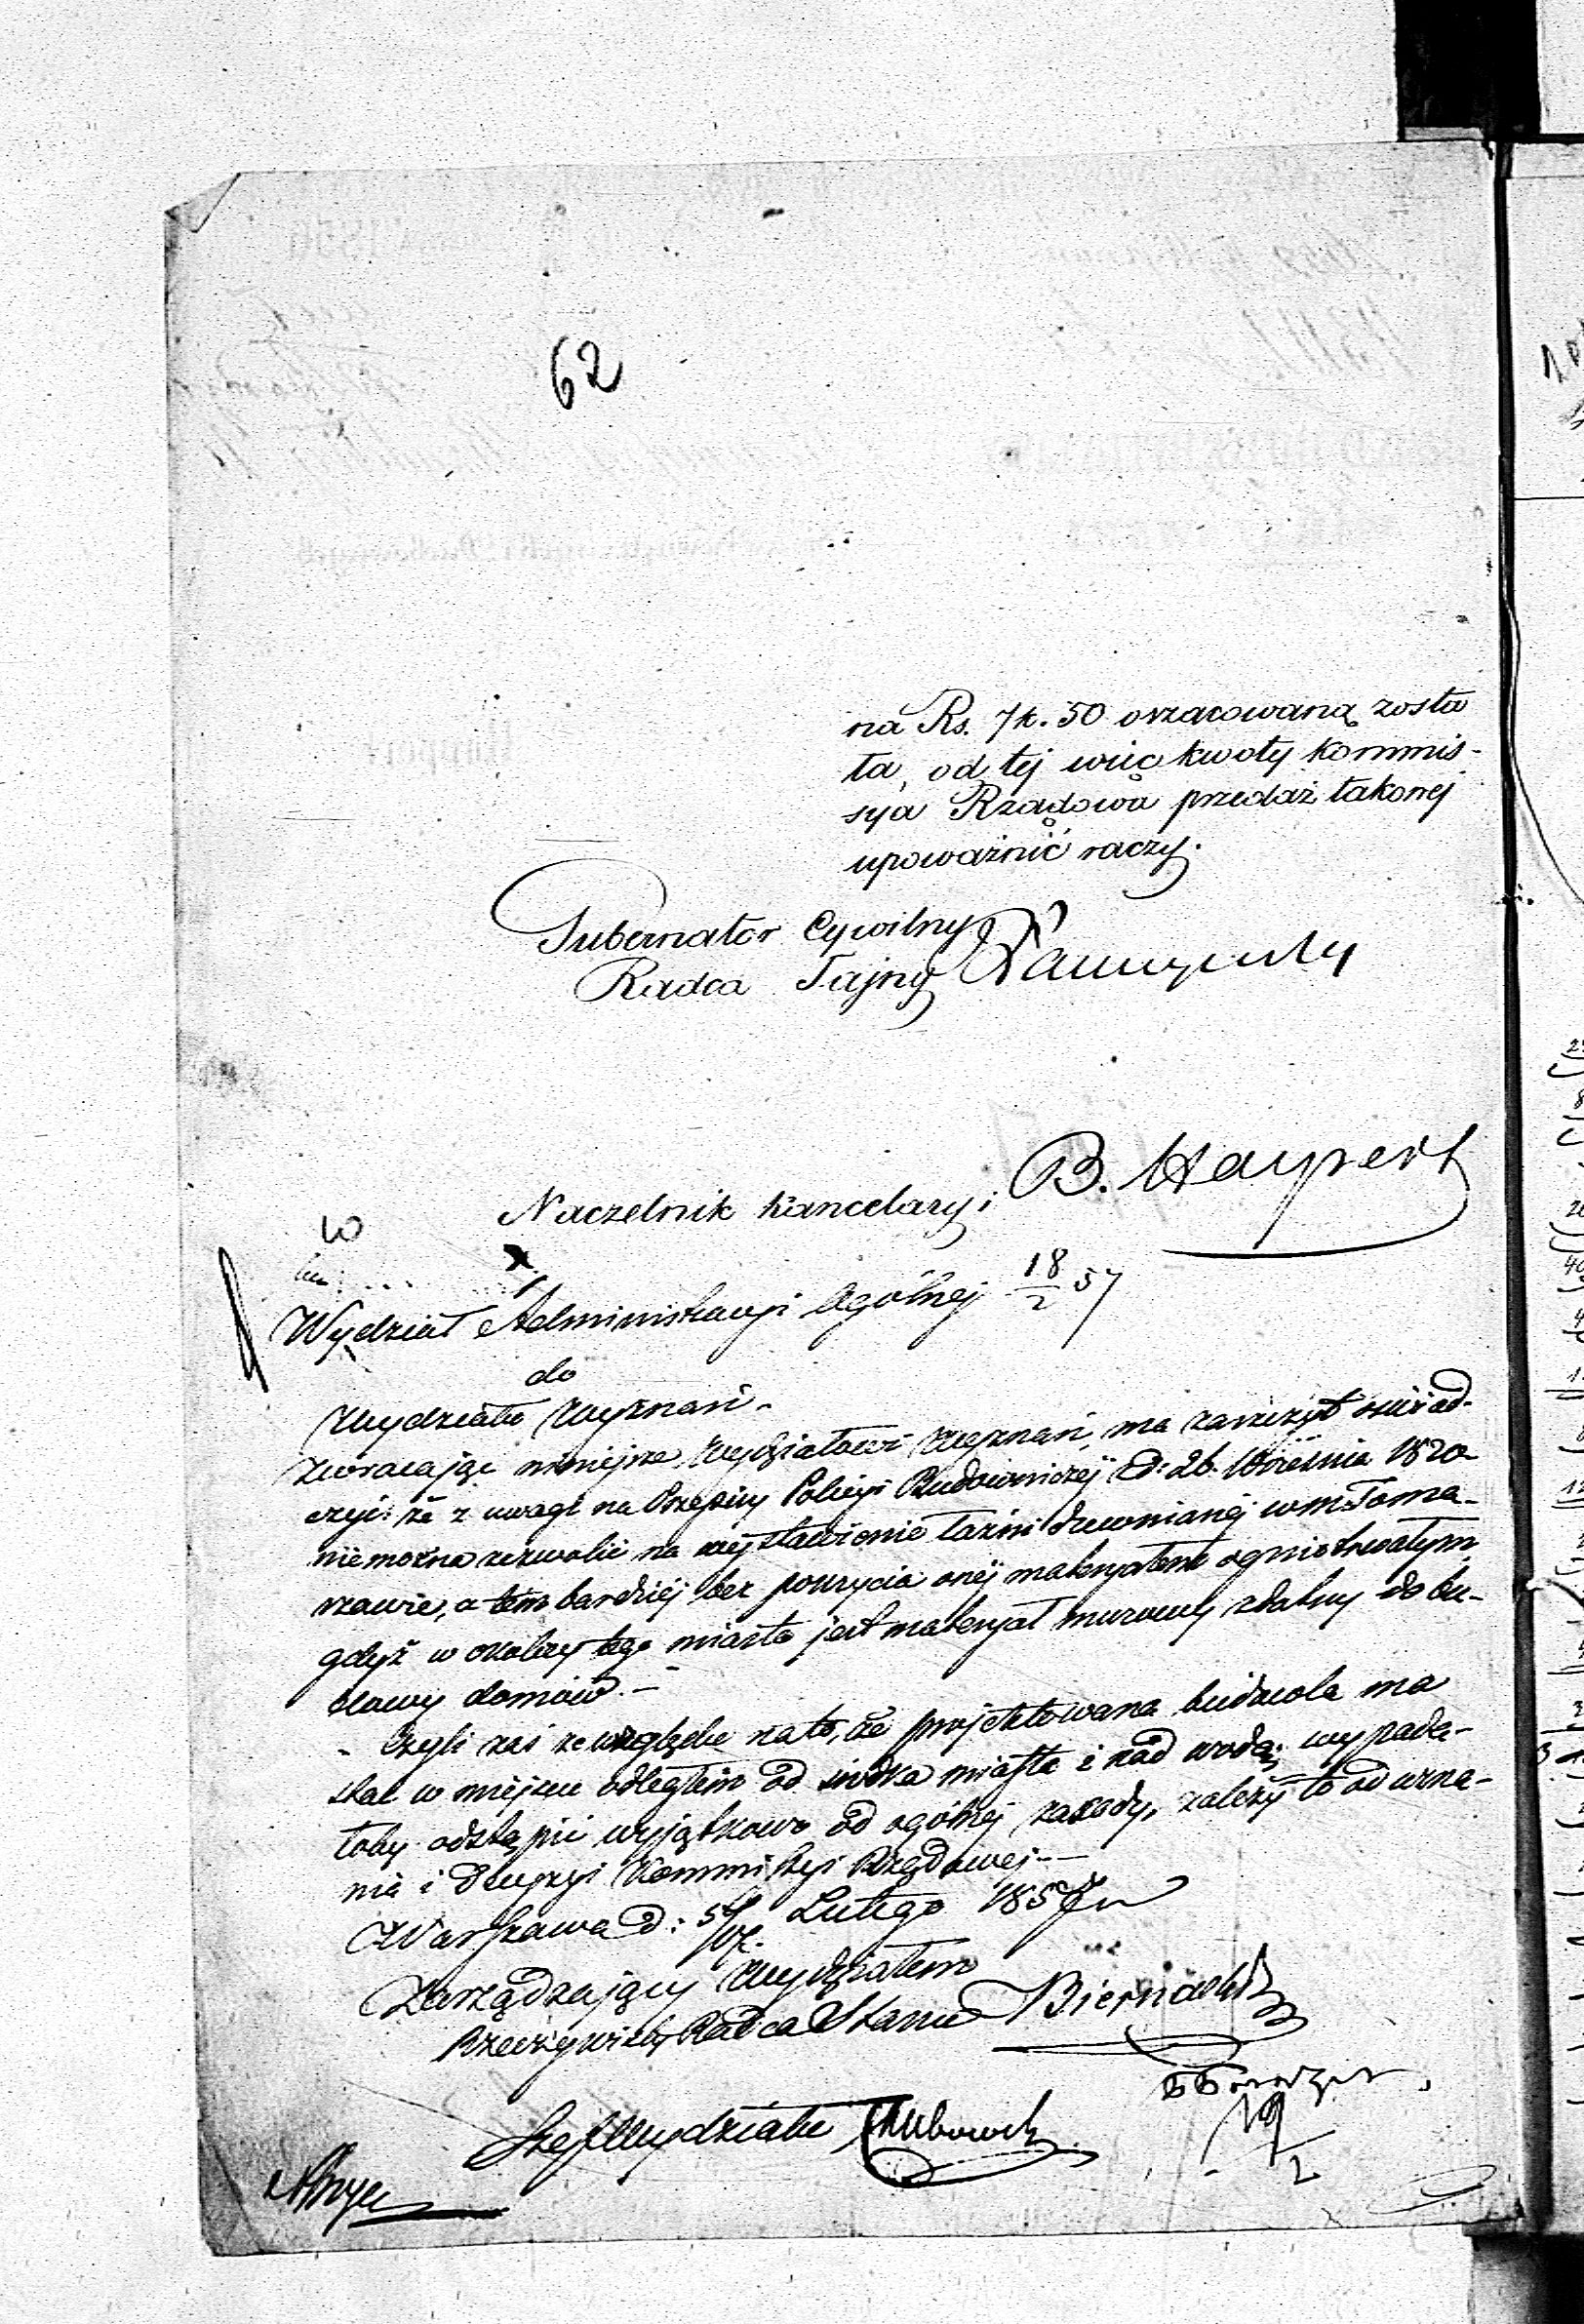 62
na Rs. 7 k. 50 oszacowaną zosta
ła, od tej więc kwoty Kommis-
sya Rządowa przedaż takowej
upoważnić raczy.
Gubernator Cywilny
Radca Tajny
Naczelnik Kancelaryi B. Haypert
Wydział Administracyi Ogólnej 18/2 57
do
Wydziału Wyznań.
Zwracając niniejsze Wydziałowi Wyznań, ma zaszczyt oświad-
czyć: że z uwagi na Przepisy Policyi Budowniczéj z d: 26. Września 1820
niemożna zezwolić na wystawienie łaźni drewnianéj w m Toma-
szowie, a tém bardziéj bez pokrycia onéj materyałem ogniotrwałym,
gdyż w okolicy tego miasta jest materyał murowy zdatny do bu-
dowy domów. –
Czyli zaś ze względu na to, że projektowana budowla ma
stać w miejscu odległém od środka miasta i nad wodą; wypada-
łoby odstąpić wyjątkowo od ogólnej zasady, zależy to od uzna-
nia i decyzyi Kommissyi Rządowej. –
Warszawa d: 5/17. Lutego 1857 r.
Zarządzający Wydziałem
Rzeczywisty Radca Stanu Biernacki
19/2
Szef Wydziału